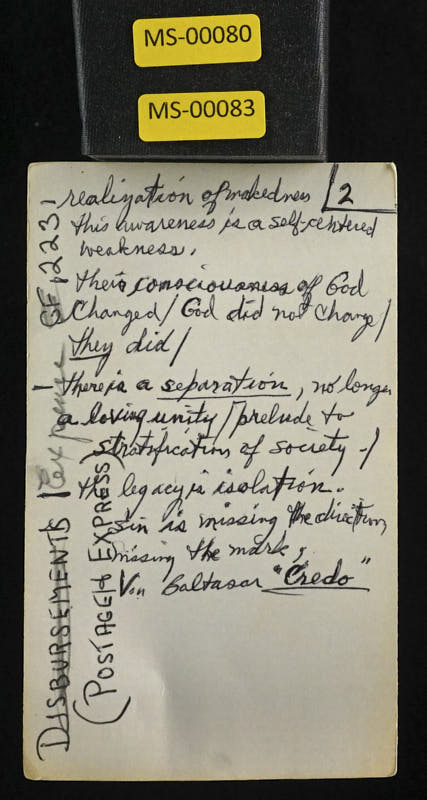 MS-00080
MS-00083
2
realization of nakedness
this awareness is a self-centered
weakness.
their consciousness of God
Changed / God did not change /
they did /
there is a separation, no longer
a loving unity / prelude to
stratification of society - /
the legacy is isolation.
Sin is missing the direction,
missing the mark,
Von Baltasar "Credo"
DISBURSEMENTS / expense GE 1223-
(POSTAGE & EXPRESS)